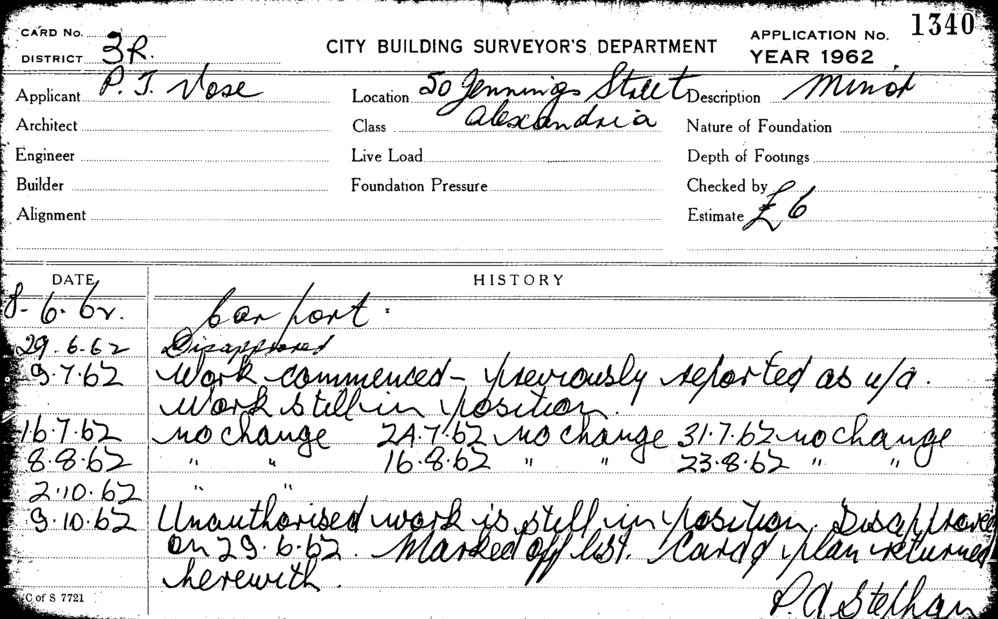 CARD No.
DISTRICT 3R.
CITY BUILDING SURVEYOR'S DEPARTMENT
APPLICATION No. 1340
YEAR 1962
Applicant P. J. Vose
Location 50 Jennings Street
Description Minor
Architect
Class Alexandria
Nature of Foundation
Engineer
Live Load
Depth of Footings
Builder
Foundation Pressure
Checked by
Alignment
Estimate £6
DATE HISTORY
8-6-62. Car port.
29.6.62 Disapproved
9.7.62 Work commenced - previously reported as u/a.
Work still in position.
16.7.62 no change 24.7.62 no change 31.7.62 no change
8.8.62 " " 16.8.62 " " 23.8.62 " "
2.10.62 " "
9.10.62 Unauthorised work is still in position. Disapproved
on 29.6.62. Marked off list. Card & plan returned
herewith.
C of S 7721